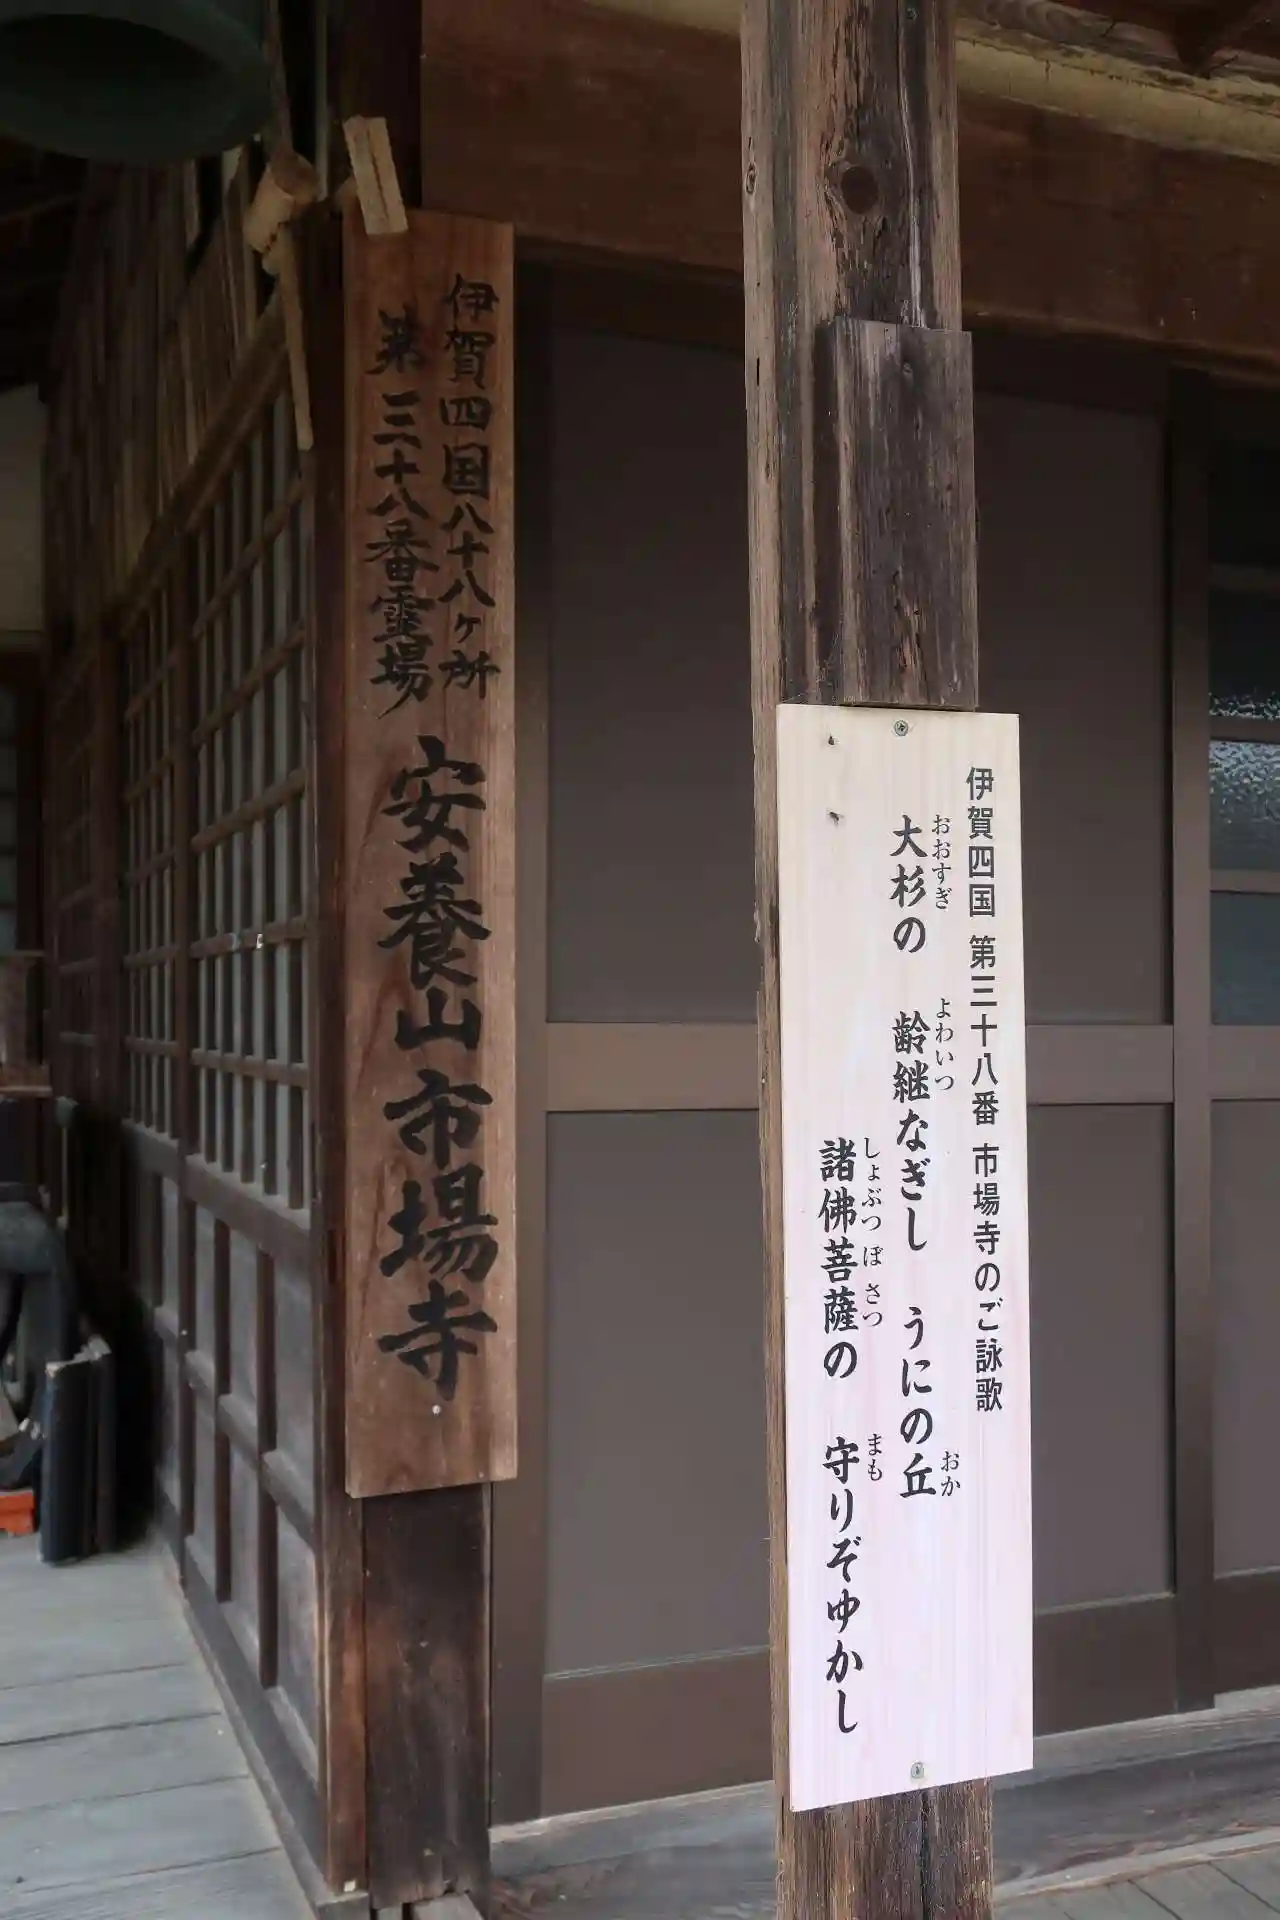 伊賀四国八十八ヶ所
第三十八番霊場
安養山市場寺
伊賀四国 第三十八番 市場寺のご詠歌
おおすぎ よわいつ おか
大杉の 齢継なぎし うにの丘
しょぶつ ぼ さつ まも
諸佛菩薩の 守りぞゆかし